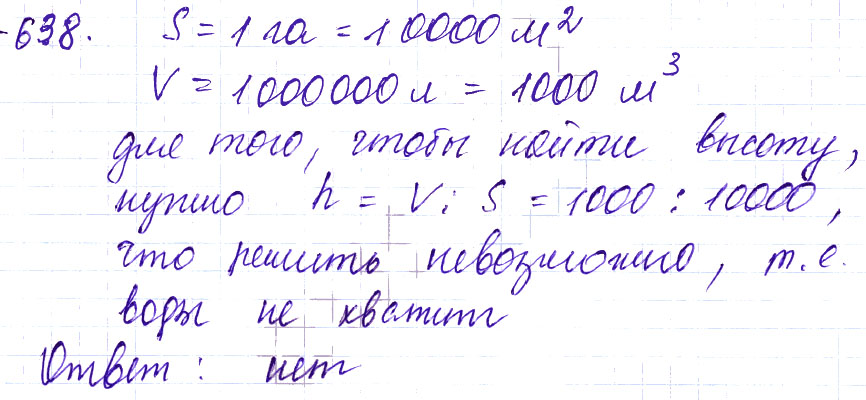 638. S = 1 га = 10000 м²
V = 1000000 л = 1000 м³
для того, чтобы найти высоту,
нужно h = V : S = 1000 : 10000,
что решить невозможно, т.е.
воды не хватит
Ответ: нет